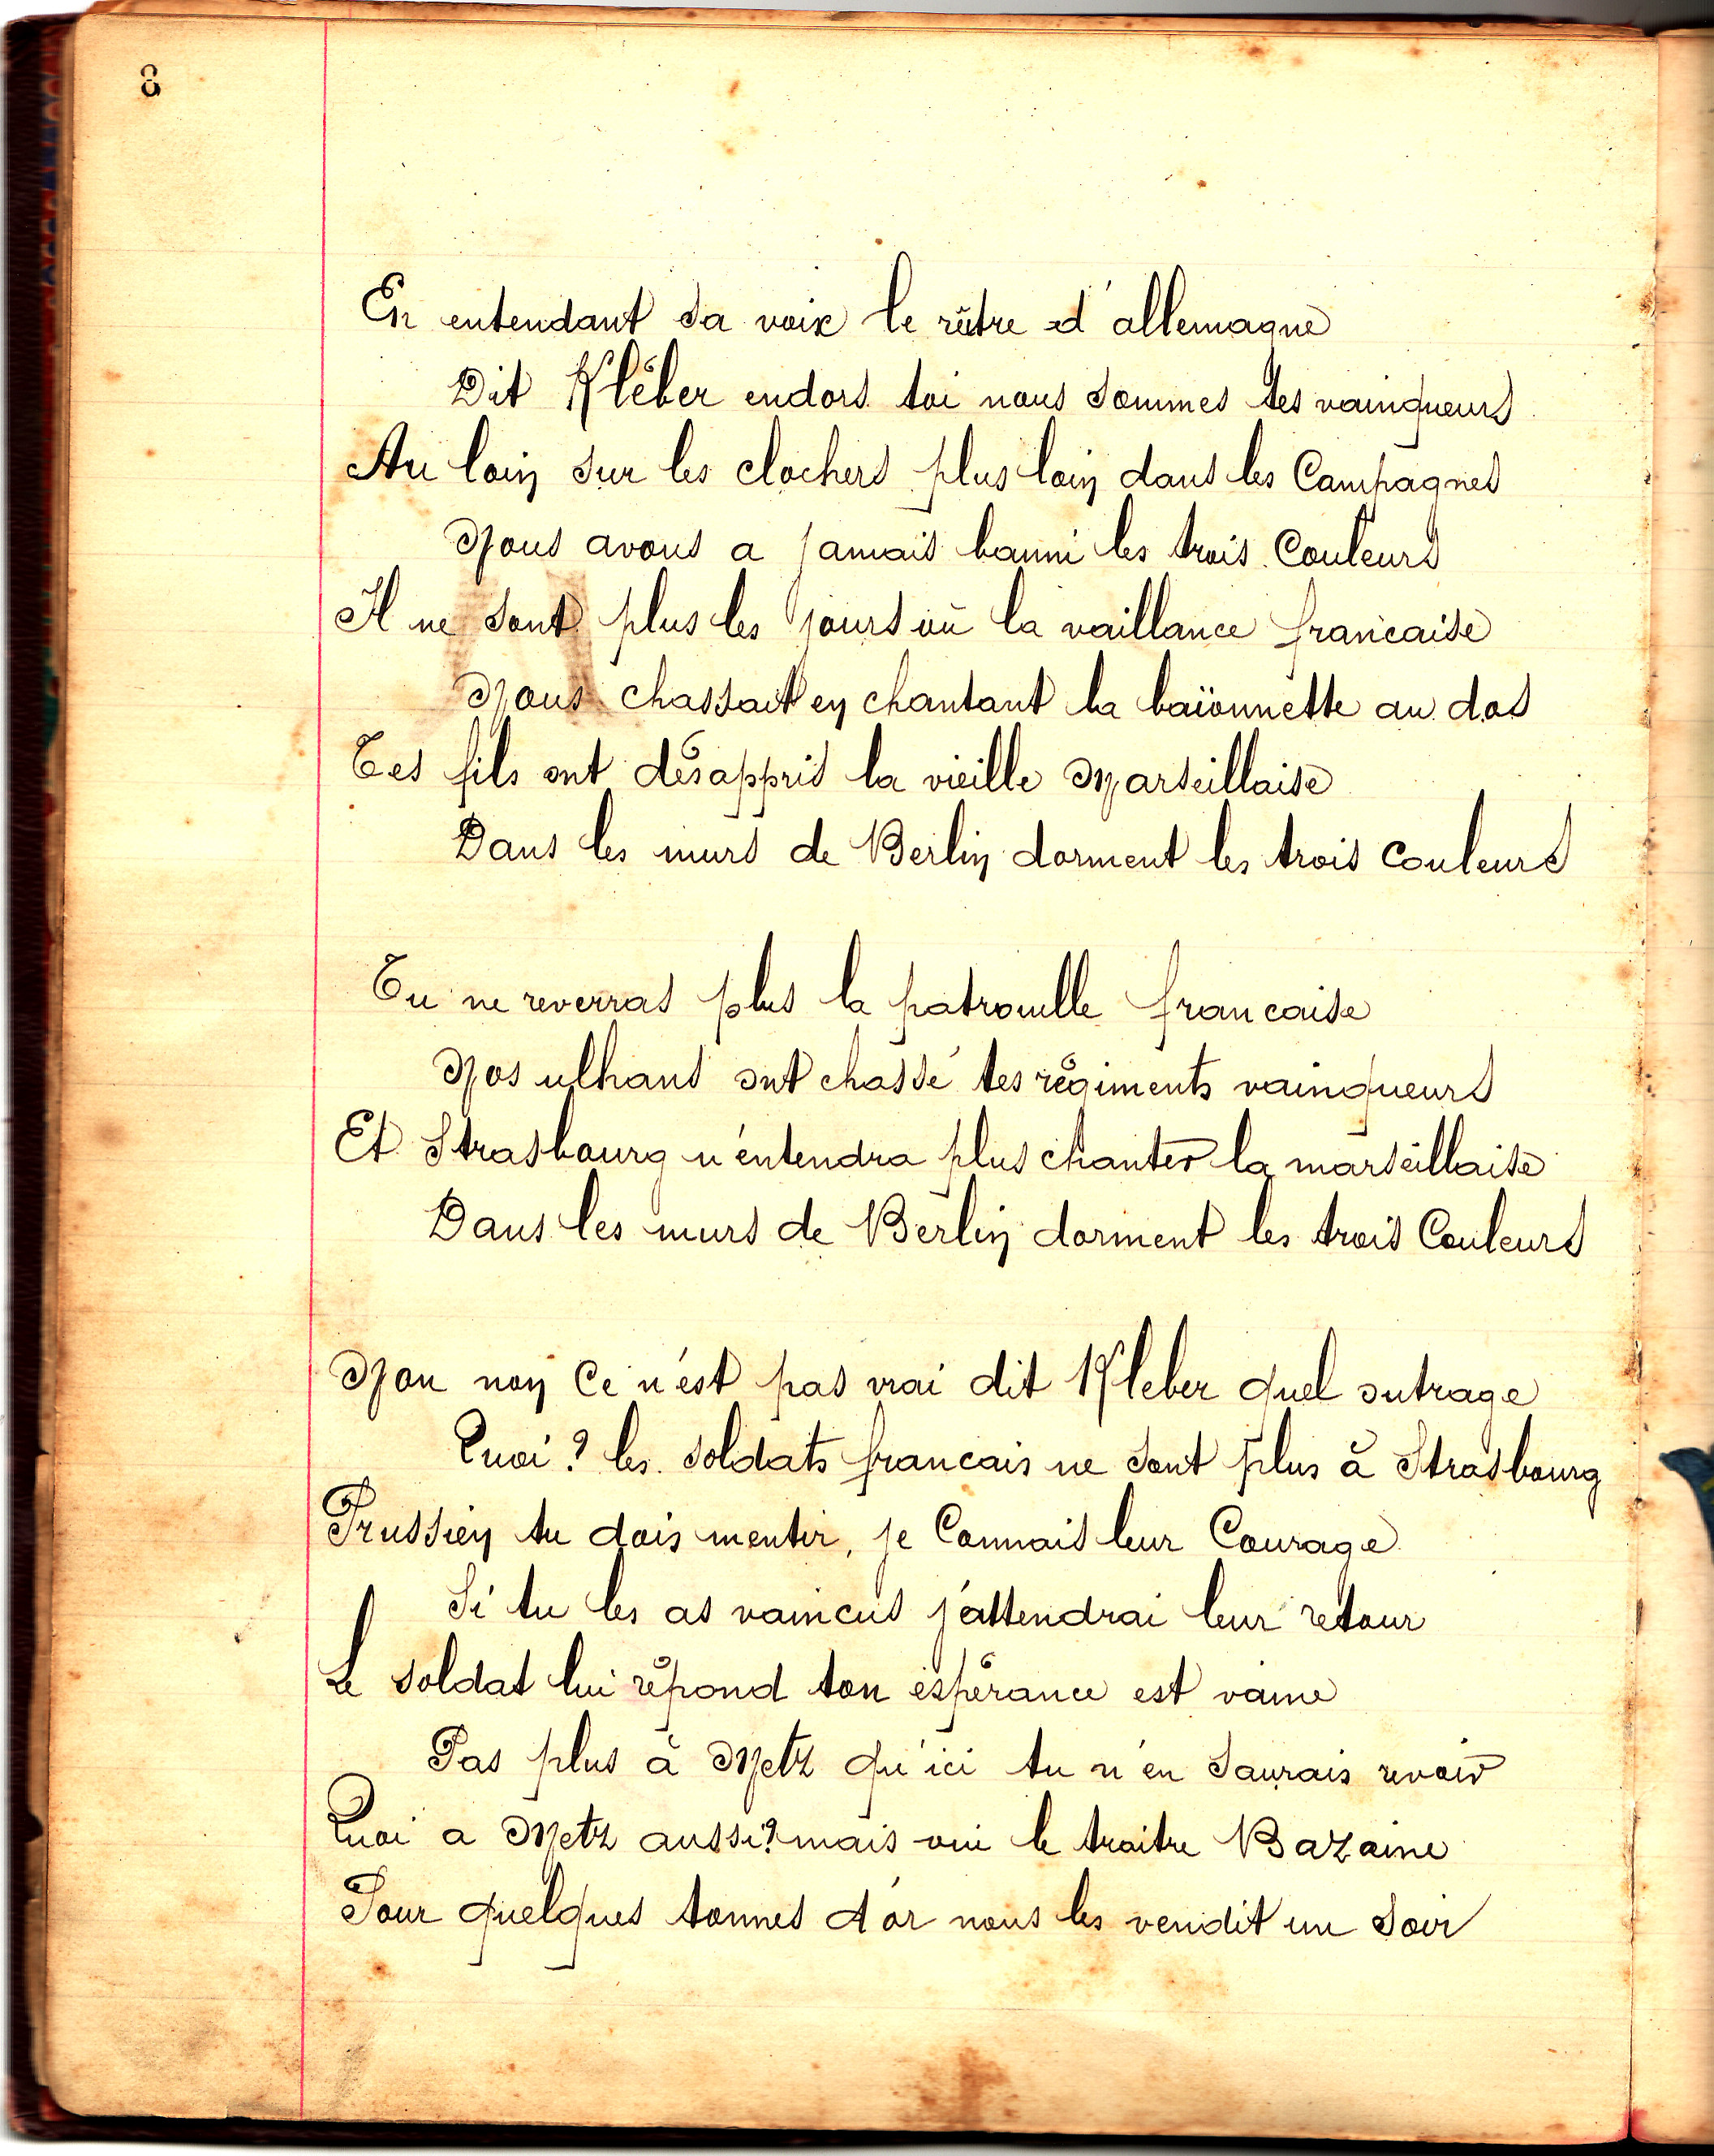 8
En entendant sa voix le rêitre d'allemagne
Dit Kléber endors toi nous sommes tes vainqueurs
Au loin sur les clochers plus loin dans les Campagnes
Nous avons a jamais banni les trois Couleurs
Il ne sont plus les jours où la vaillance francaise
Nous chassait en chantant la baïonnette au dos
Tes fils ont désappris la vieille Marseillaise
Dans les murs de Berlin dorment les trois couleurs
Tu ne reverras plus la patrouille francaise
Nos ulhans ont chassé tes régiments vainqueurs
Et Strasbourg n'entendra plus chanter la marseillaise
Dans les murs de Berlin dorment les trois Couleurs
Non non Ce n'est pas vrai dit Kleber quel outrage
Quoi ? les soldats francais ne sont plus à Strasbourg
Prussien tu dois mentir, je Connais leur Courage
Si tu les as vaincus j'attendrai leur retour
Le soldat lui répond ton espérance est vaine
Pas plus à Metz qu'ici tu n'en saurais revoir
Quoi a Metz aussi? mais oui le traitre Bazaine
Pour quelques tonnes d'or nous les vendit un soir